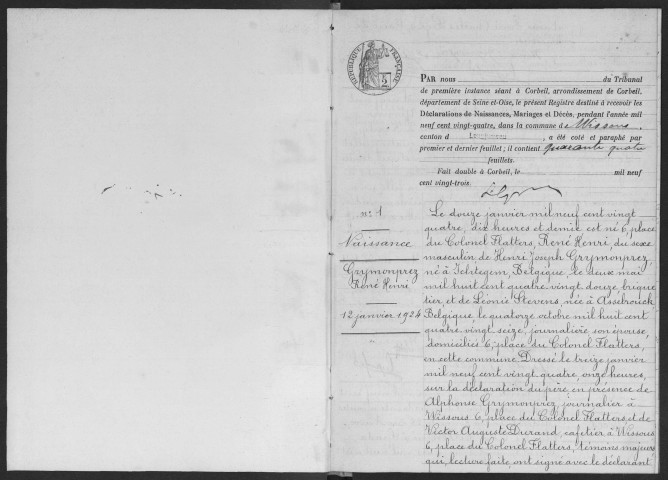 RÉPUBLIQUE FRANÇAISE
2
PAR nous du Tribunal
de première instance séant à Corbeil, arrondissement de Corbeil,
département de Seine-et-Oise, le présent Registre destiné à recevoir les
Déclarations de Naissances, Mariages et Décès, pendant l'année mil
neuf cent vingt-quatre, dans la commune de Wissous
canton d , a été coté et paraphé par
premier et dernier feuillet ; il contient quarante quatre
feuillets.
Fait double à Corbeil, le mil neuf
cent vingt-trois.
n° 1
Naissance
Grymonprez
René Henri
12 janvier 1924
Le douze janvier mil neuf cent vingt
quatre, dix heures et demie est né 6, place
du Colonel Flatters, René Henri, du sexe
masculin de Henri Joseph Grymonprez,
né à Ichtegem, Belgique le deux mai
mil huit cent quatre vingt douze, brique
tier, et de Léonie Stevens, née à Assebrouck
Belgique, le quatorze octobre mil huit cent
quatre vingt seize, journalière, son épouse,
domiciliés 6, place du Colonel Flatters,
en cette commune Dressé le treize janvier
mil neuf cent vingt quatre onze heures,
sur la déclaration du père, en présence de
Alphonse Grymonprez journalier à
Wissous 6, place du Colonel Flatters, et de
Victor Auguste Durand, cafetier à Wissous
6, place du Colonel Flatters, témoins majeurs
qui, lecture faite, ont signé avec le déclarant